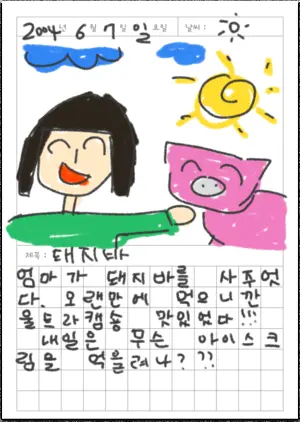 2004년 6월 7일 일요일 날씨:
제목: 돼지바
엄마가 돼지바를 사주엇
다. 오랜만에 먹으니깐
울트라캡숑 맛있었다!!!
내일은 무슨 아이스크
림을 먹을려나? ??